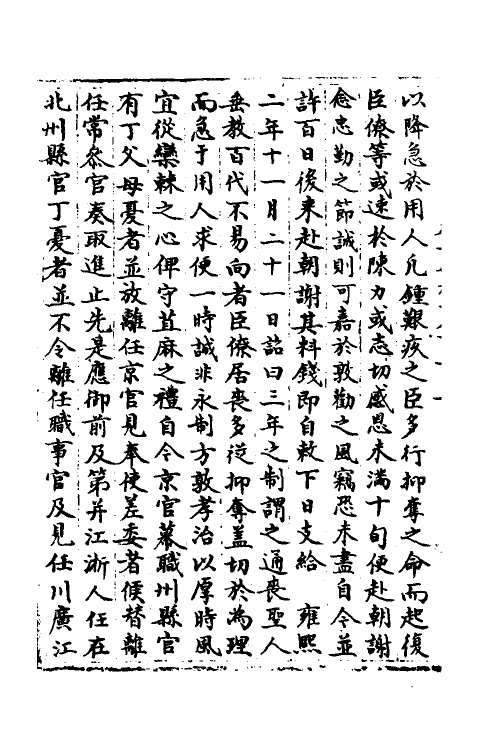 以降急於用人凡鍾艱疚之臣多行抑奪之命而起復
臣僚等或速於陳力或志切感恩未滿十旬便赴朝謝
念忠勤之節誠則可嘉於敦勸之風竊恐未盡自今並
許百日後来赴朝謝其料錢即自敕下日支給　雍熙
二年十一月二十一日詔曰三年之制謂之通喪聖人
垂教百代不易向者臣僚居喪多從抑奪蓋切於為理
而急于用人求便一時誠非永制方敦孝治以厚時風
宜從欒棘之心俾守苴麻之禮自今京官幕職州縣官
有丁父母憂者並放離任京官見奉使差委者候替離
任常叅官奏取進止先是應御前及第并江浙人任在
北州縣官丁憂者並不令離任職事官及見任川廣江